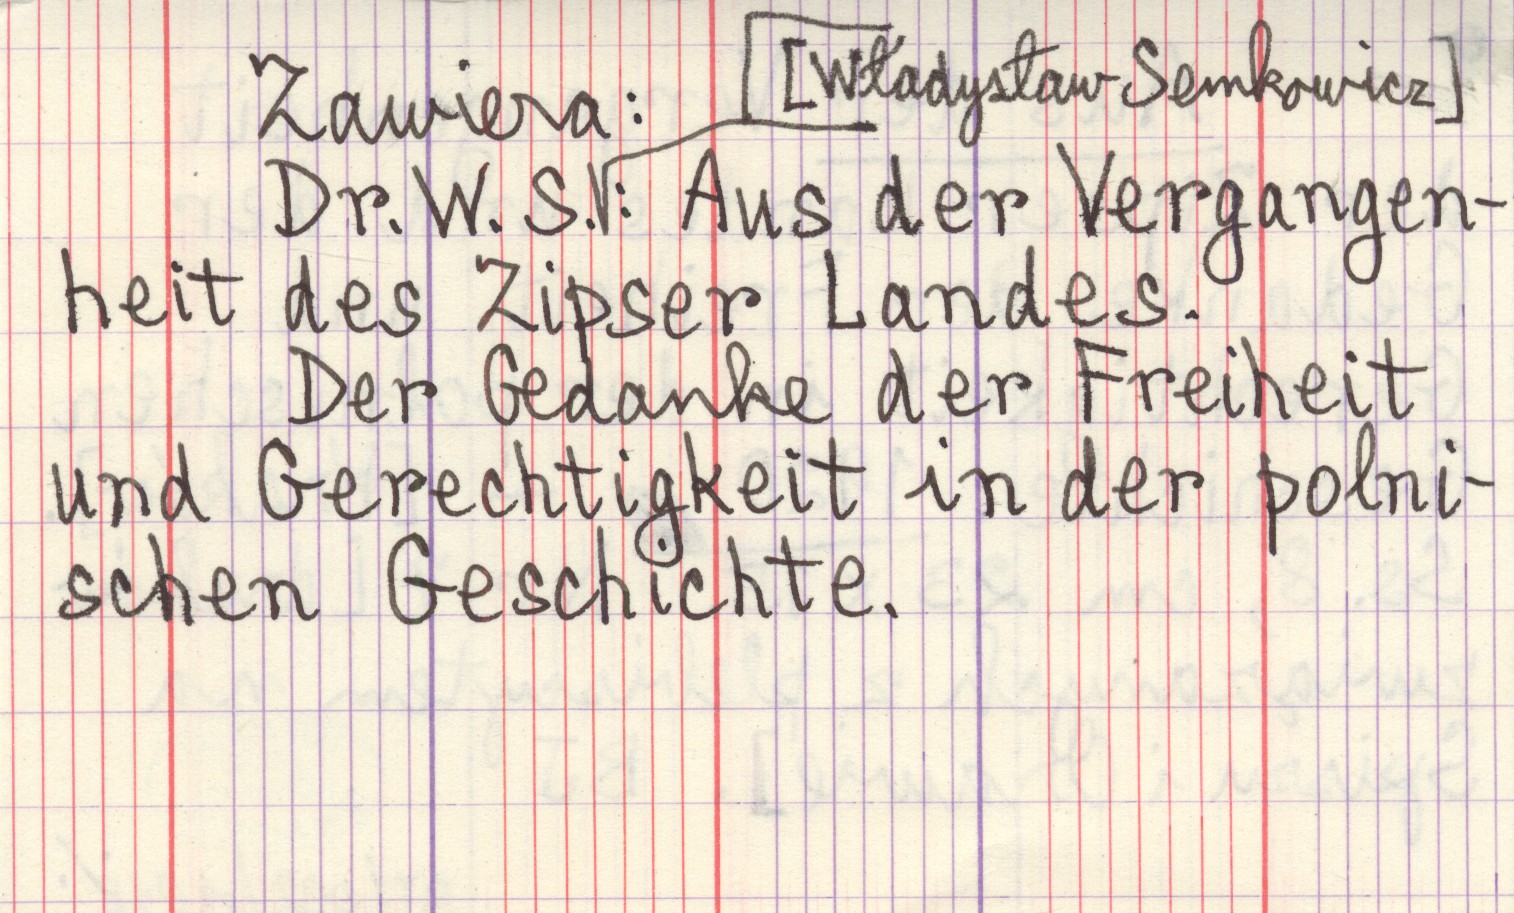 Zawiera:
[Władysław Semkowicz]
Dr. W. S.: Aus der Vergangen-
heit des Zipser Landes.
Der Gedanke der Freiheit
und Gerechtigkeit in der polni-
schen Geschichte.